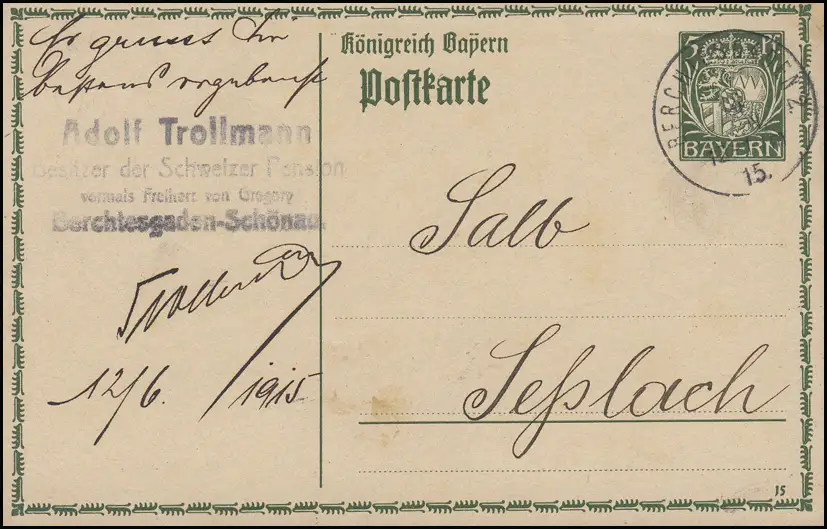 Es grüsst Sie
bestens ergebenst
Adolf Trollmann
Besitzer der Schweizer Pension
vormals Freiherr von Gregory
Berchtesgaden-Schönau.
Trollmann
12/6. 1915
Königreich Bayern
Postkarte
5 Pf
BAYERN
15.
Salb
Seßlach
15